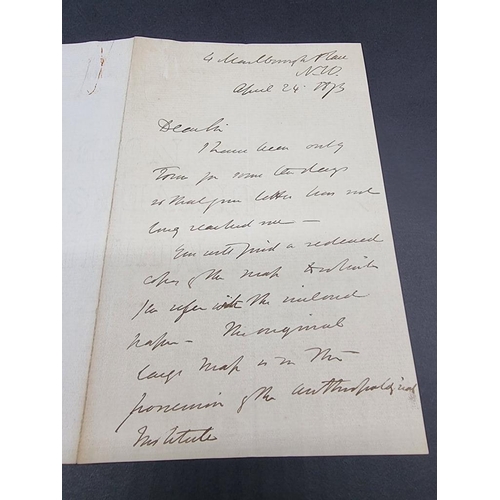 4 Marlborough Place
N.W.
April 24. 1873
Dear Sir
I have been out of
Town for some ten days
so that your letter has not
long reached me —
You will find a reduced
copy of the map to which
you refer with the inclosed
paper — The original
large map is in the
possession of the Anthropological
Institute